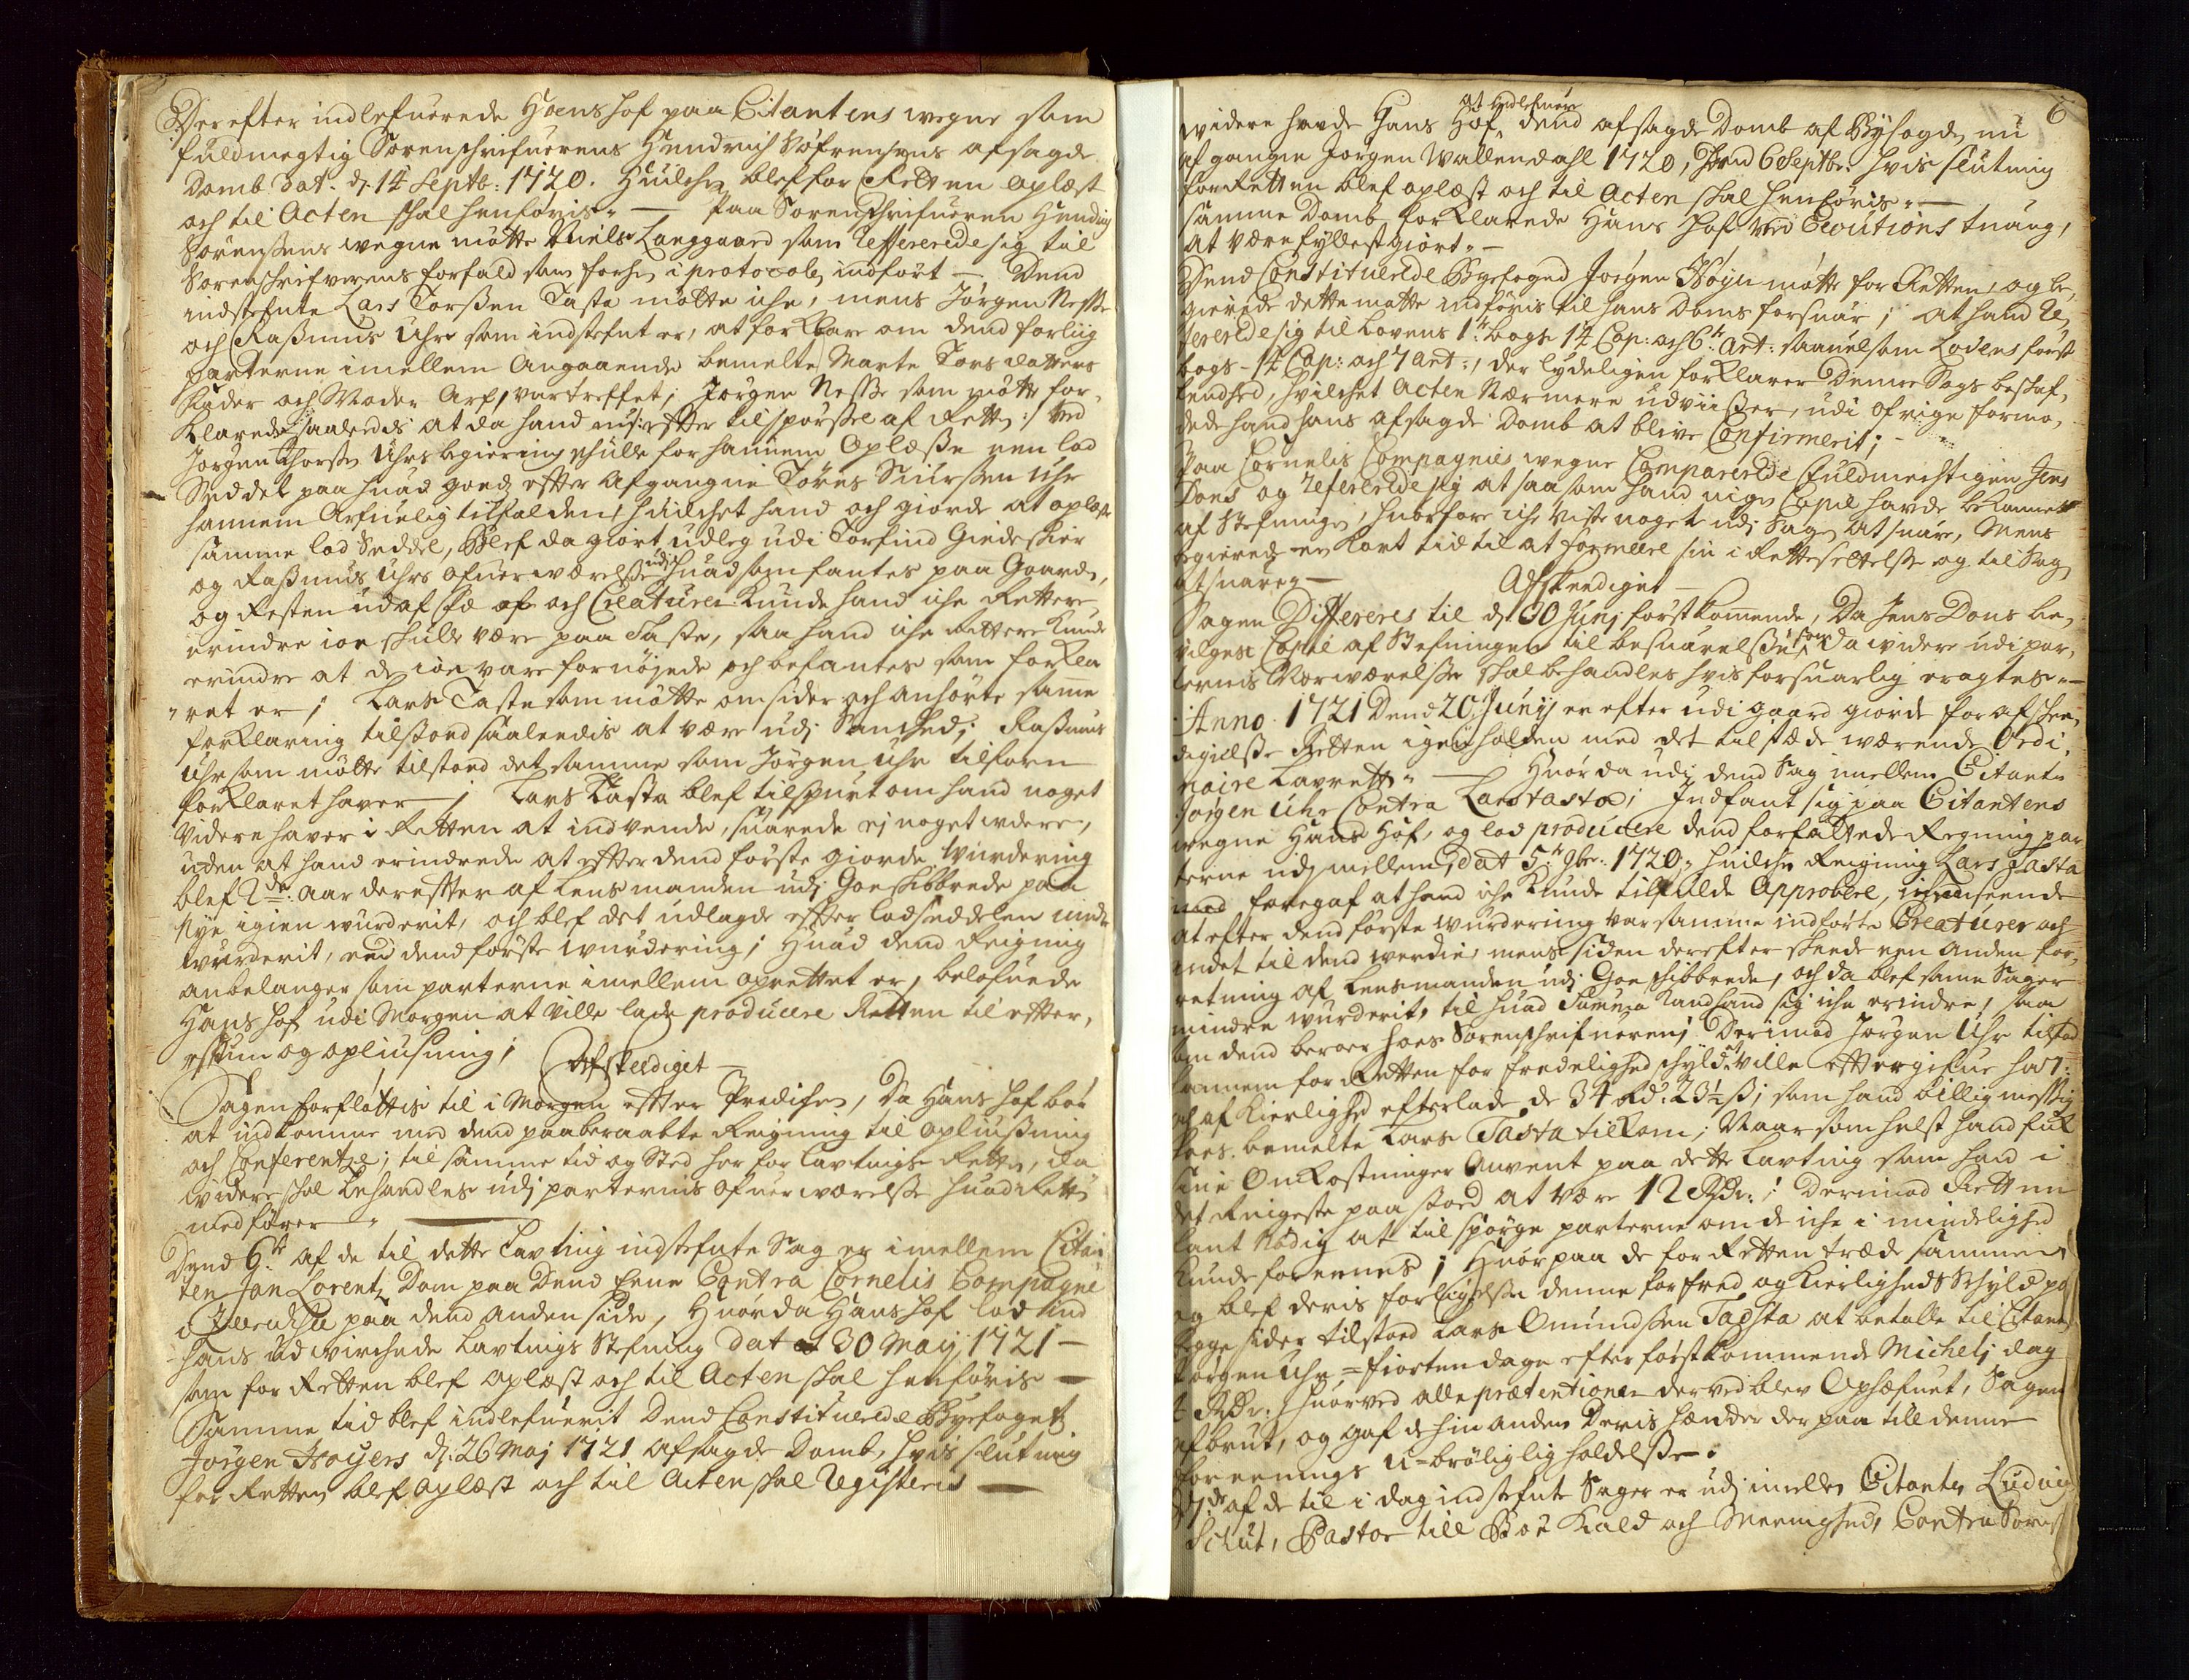 Derefter indlefuerede Hans Hof paa Citantens wegne som
fuldmegtig Sorenschrifuerens Hendrich Söfrensens afsagde
Domb Dat. d. 14 Septb: 1720. Huilchen blef for Retten oplæst
och til Acten skal henföris. — Paa Sorenschrifueren Hendrich
Sörensens wegne mötte Niels Langgaard som Reffererede sig til
Sorenschrifverens forfald som forhen i protocolen indfört — Dend
indstefnte Lars Torsen Tasta mötte iche, mens Jörgen Nesse
och Rasmus Uhre som indstefnt er, at forklare om dend forliig
parterne imellem Angaaende bemelte Marte Torsdatters
Fader och Moder Arf, vartreffet; Jörgen Nesse som mötte for,
klarede saaledis at da hand nu efter tilspörsel af Retten: ved
Jörgen Thorsen Uhrs begiering skulle for hannem Oplæse een lod
Seddel paa huad goeds effter Afgangne Törres Siursen Uhr
hannem Arfuelig tilfalden, huilchet hand och giorde at oplæse
samme lod Seddel, Blef da giort udleg udi Torfind Giedeskier
og Rasmus Uhrs Ofuerwærelse udi huad som fantes paa Gaarden,
og Resten udaf fæ af och Creaturer kunde hand iche Rettere
erindre ioe skulle være paa Taste, saa hand iche Rettere kunde
erindre at de ioe vare fornöjede och befantes som forkla
ret er; Lars Taste som mötte omsider och anhörte samme
forklaring tilstoed saaledis at være udj Sandhed; Rasmus
Uhr som mötte tilstoed det samme som Jörgen Uhr tilforn
forklaret haver; Lars Tasta blef tilspurt om hand noget
Videre haver i Retten at indvende, suarede ej noget widere,
uden at hand erindrede at effter dend förste giorde Wurdering
blef 2de: aar dereffter af Lensmanden udj Goeskibbrede paa
Nye igien wurderit, och blef det udlagde effter lodseddelen mindre
wurderit, end dend förste wurdering; Huad dend Reigning
anbelanger som parterne imellem oprettet er, belofuede
Hans Hof udi Morgen at Ville lade producere Retten til effter,
ettum og opliusning; Afskeediget —
Sagen forflöttis til i Morgen effter Predichen, Da Hans Hof bör
at indkomme med dend paaberaabte Reigning til opliusning
och Conferentze; til samme tid og Sted her for Lavtings Retten, da
videre skal behandles udj parternis Ofuerwærelse huad Retten
medförer —
Dend 6te af de til dette Lavting indstefnte Sag er imellem Citan-
ten Jan Lorentz Dom paa Dend Eene Contra Cornelis Compagne
paa dend anden side, Huorda Hans Hof lod ind
Hans udvirchede Lavtings Stefning dat d 30 Maij 1721 —
som for Retten blef oplæst och til Acten skal henföris —
Samme tid blef indlefuerit Dend Constituerede Byefoget
Jörgen Hoÿers d. 26 Maj 1721 afsagde Domb, hvis slutning
for Retten blef oplæst och til Acten skal Registeris —
6
at indlefuere
widere hafde Hans Hof, dend afsagde Domb af Byfogden nu
afgangne Jörgen Wallendahl 1720, Dend 6 Septbr: hvis slutning
for Retten blef oplæst och til Acten skal henföris. —
samme Domb forklarede Hans Hof ved Executions tuang,
at være fyllestgiort. —
Dend Constituerede Byefoged Jörgen Höyer mötte for Retten, og be,
gierede dette motte indföris til hans Doms forsuar; at hand Re,
fererede sig til Lovens 1te bogs 14 Cap: och 6te Art: saauelsom Lovens förste
bogs - 14 Cap: och 7 Art:, der lydeligen forklarer Denne Sags beskaf,
fenhed, hvilchet Acten Nærmere udviiser, udi Ofrige formo,
dede hand hans afsagde Domb at blive Confirmerit; —
Paa Cornelis Compagnies wegne Comparerede Fuldmechtigen Jens
Dons og Refererede sig at saasom hand ingen Copie hafde bekommet
af Stefningen, huorfore iche viste noget udj Sagen at suare, Mens
begierede en kort tid til at formere sin i Rettesettelse og til Sagen
at suare. —
Afskeediget —
Sagen Differeres til d 30 Junj förstkomende, Da Jens Dons be,
vilges Copie af Stefningen til besuarelse, som da widere udi par,
ternis Nærwærelse skal behandles hvis forsuarlig eragtes. —
Anno 1721 Dend 20 Junij er efter udi gaard giorde for afskee,
digelse Retten igien holden med det tilstæde wærende Ordi,
naire Lavrett. — Huor da udj dend Sag imellem Citanten
Jörgen Uhre Contra Lars Tasta; Indfant sig paa Citantens
wegne Hans Hof, og lod producere dend forfattede Regning par
terne udj mellem, dat 5te 9br: 1720, huilchen Reigning Lars Tasta
foregaf at hand iche kunde tilfulde Approbere, i henseende
at efter dend förste wurdering var samme indförte Creaturer och
andet til dend werdie, mens siden derefter skeede een anden for,
retning af Lensmanden udj Goeskibbrede, och da blef samme Sager
mindre wurderit, til huad Summa kand hand sig iche erindre, saa
som dend beroer hoes Sorenschrifueren; Derimod Jörgen Uhr tilbød
hannem for Retten for fredelighed skyld at ville effter gifue ham:
af Kierlighed efterlade de 34 Rd: 23½ ß, som hand billig messig
hoes bemelte Lars Tasta tilkom; Naar som helst hand fick
sine Omkostninger Anvent paa dette Lavting som hand i
det Ringeste paastoed at være 12 Rdr.; Derimod Retten
fant Nödig at tilspörge parterne om de iche i mindelighed
kunde foreenes; Huor paa de for Retten træde sammen
og blef deris forligelse denne for fred og Kierligheds Skyld paa
begge sider tilstoed Lars Omundsen Tasta at betalle til Citanten
Jörgen Uhr, fiorten dage efter förstkommende Michelj dag
Rdr. Huorved alle prætentioner derved blev Ophæfuet, Sagen
afbrut, og gaf de hinanden Deris hænder der paa till denne
foreenings u-bröliglig holdelse.
7de af de til i dag indstefnte Sager er udj imellem Citanten Ludvig
Schut, Pastor till Boe Kald och Meenighed, Contra Sören